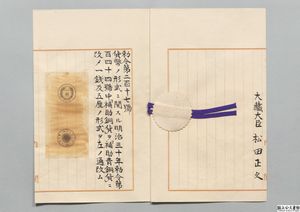 大藏大臣 松田正久
勅令第二百十七號
貨幣ノ形式ニ關スル明治三十年勅令第
百四十四號中補助銅貨ヲ補助靑銅貨ニ
改メ一錢及五厘ノ形式ヲ左ノ通改ム
国立公文書館